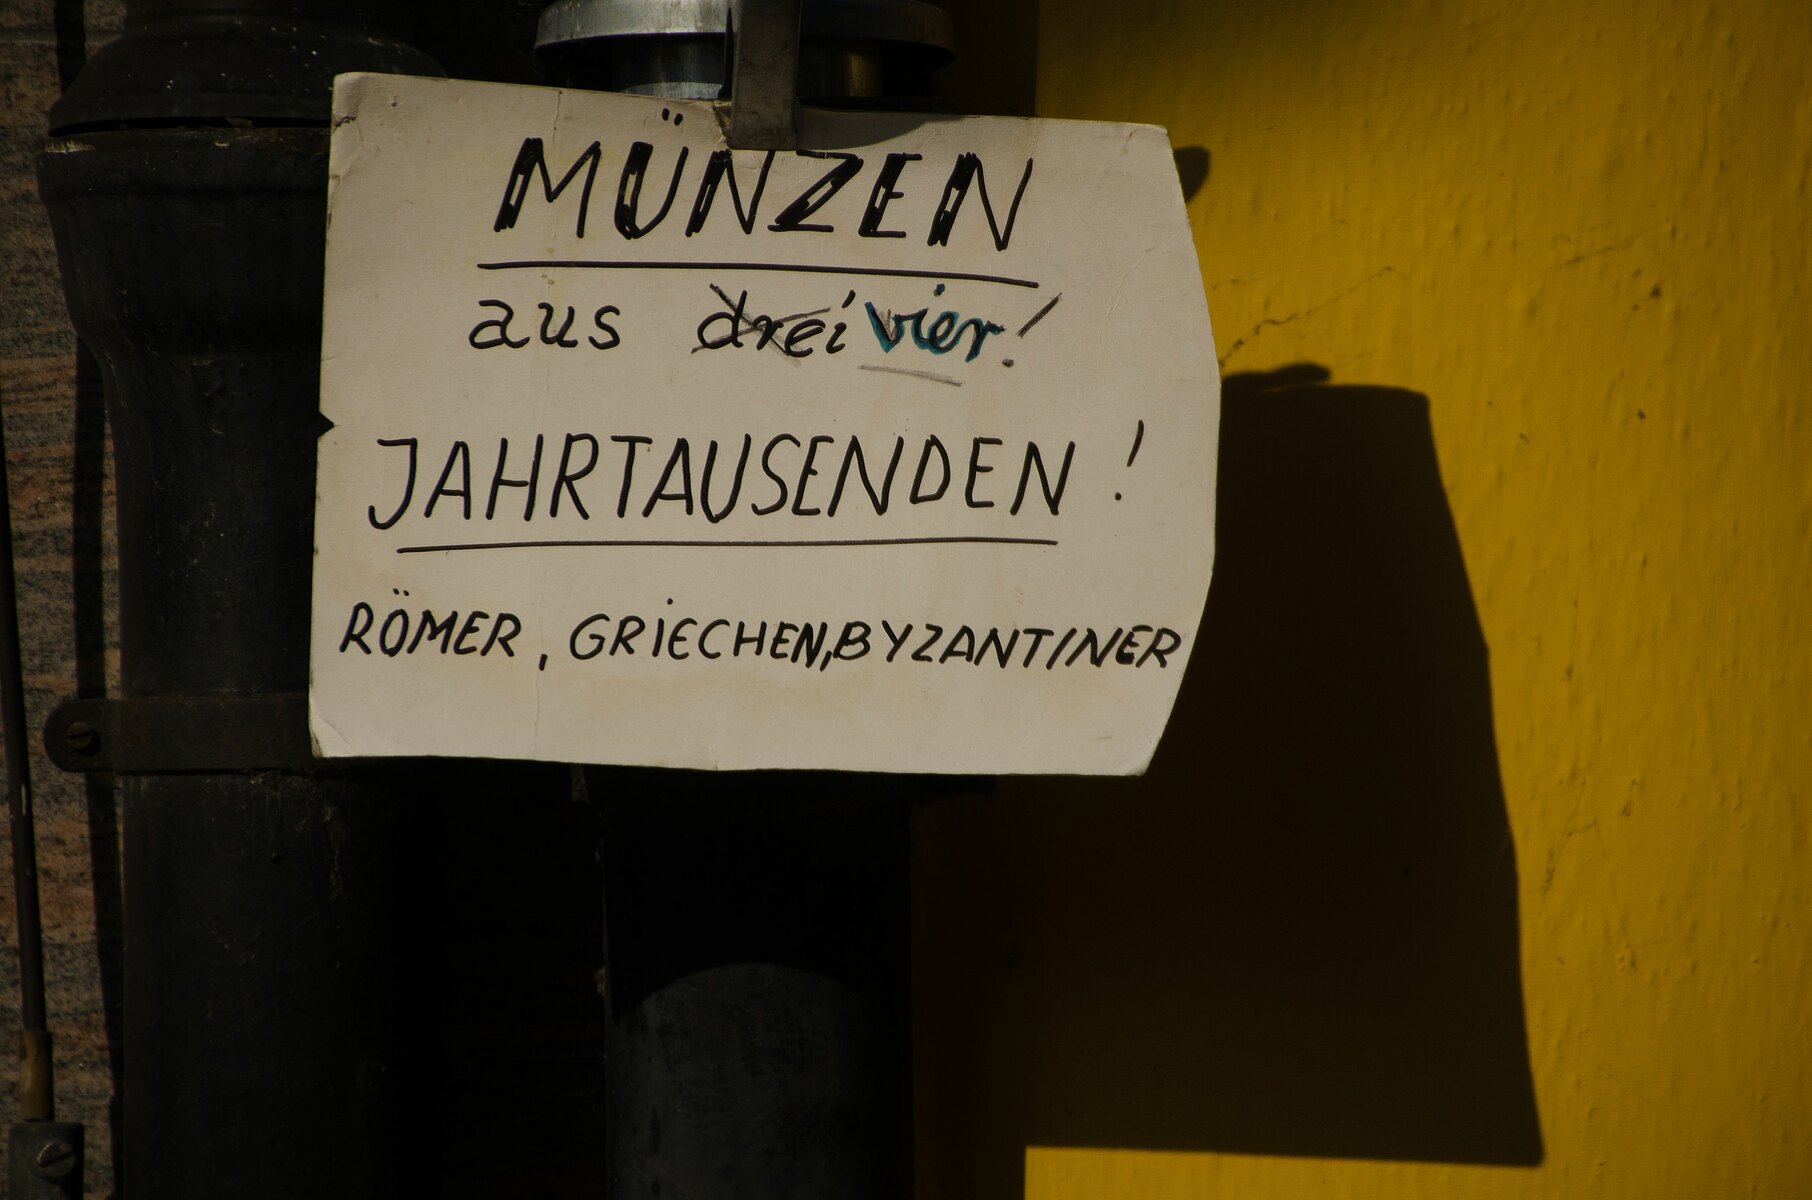 MÜNZEN
aus drei vier!
JAHRTAUSENDEN!
RÖMER, GRIECHEN, BYZANTINER